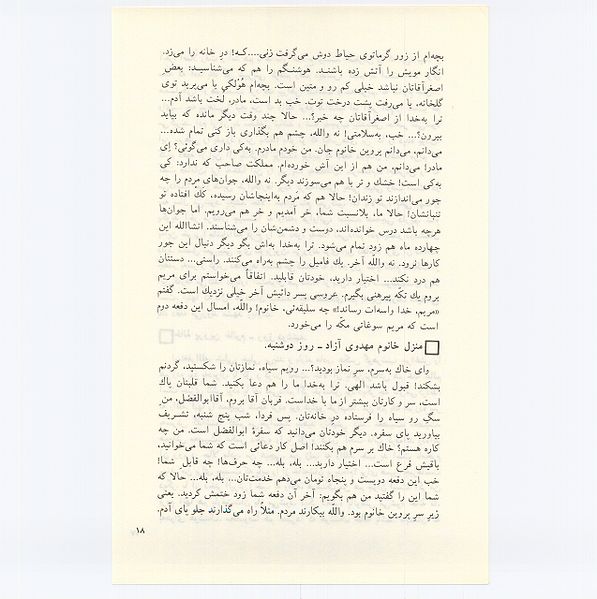 بچه‌ام از زور گرمای توی حیاط دوش می‌گرفت زنی....که! در خانه را می‌زد.
انگار مویش را آتش زده باشند. هوشنگم را هم که می‌شناسید: بعض
اصغرآقاتان نباشد خیلی کم رو و متین است. بچه‌ام هُولکی یا می‌پرید توی
گلخانه، یا می‌رفت پشت درخت توت. خب بد است، مادر، لخت باشد آدم...
ترا به‌خدا از اصغرآقاتان چه خبر؟... حالا چند وقت دیگر مانده که بیاید
بیرون؟... خب، به‌سلامتی! نه والله، چشم هم بگذاری باز کنی تمام شده...
می‌دانم، می‌دانم پروین خانوم جان. من خودم مادرم. به‌کی داری می‌گوئی؟ اِی
مادر! می‌دانم، من هم از این آش خورده‌ام. مملکت صاحب که ندارد: کی
به‌کی است! خشک و تر با هم می‌سوزند دیگر. نه والله، جوان‌های مردم را چه
جور می‌اندازند تو زندان! حالا هم که مردم به‌اینجاشان رسیده، کَک افتاده تو
تنبانشان! حالا ما، بلانسبت شما، خر آمدیم و خر هم می‌رویم. اما جوان‌ها
هرچه باشد درس خوانده‌اند، دوست و دشمن‌شان را می‌شناسند. انشاالله این
چهارده ماه هم زود تمام می‌شود. ترا به‌خدا به‌اش بگو دیگر دنبال این جور
کارها نرود. نه والله آخر. یک فامیل را چشم به‌راه می‌کنند. راستی... دستتان
هم درد نکند... اختیار دارید، خودتان قابلید. اتفاقاً می‌خواستم برای مریم
بروم یک تکّه پیرهنی بگیرم. عروسی پسر دائیش آخر خیلی نزدیک است. گفتم
«مریم، خدا واسه‌ات رساند!» چه سلیقه‌ئی، خانوم! والله، امسال این دفعه دوم
است که مریم سوغاتی مکّه را می‌خورد.
منزل خانوم مهدوی آزاد ـ روز دوشنبه.
وای خاک به‌سرم، سرِ نماز بودید؟... رویم سیاه، نمازتان را شکستید، گردنم
بشکند! قبول باشد الهی. ترا به‌خدا ما را هم دعا بکنید. شما قلبتان پاک
است، سر و کارتان بیشتر از ما با خداست. قربان آقا بروم، آقاابوالفضل، من
سگِ رو سیاه را فرستاده در خانه‌تان. پس فردا، شب پنج شنبه، تشریف
بیاورید پای سفره. دیگر خودتان می‌دانید که سفرهٔ ابوالفضل است. من چه
کاره هستم؟ خاک بر سرم هم بکنند! اصل کار دعائی است که شما می‌خوانید،
باقیش فرع است... اختیار دارید... بله، بله... چه حرف‌ها! چه قابل شما!
خب این دفعه دویست و پنجاه تومان می‌دهم خدمت‌تان... بله، بله... حالا که
شما این را گفتید من هم بگویم: آخر آن دفعه شما زود ختمش کردید. یعنی
زیر سر پروین خانوم بود. والله بیکارند مردم. مثلاً راه می‌گذارند جلو پای آدم.
۱۸